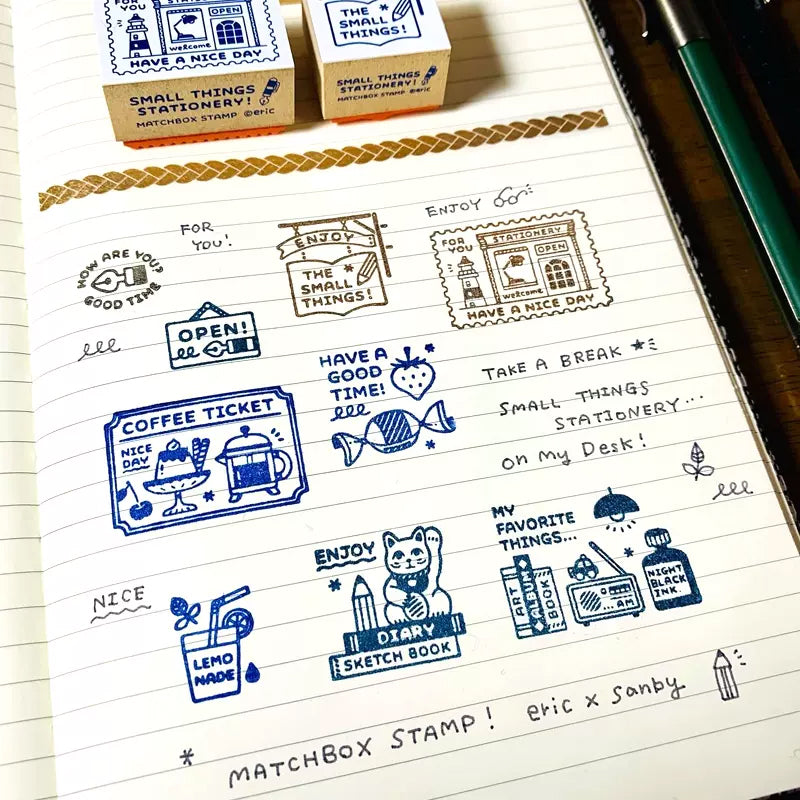 FOR YOU
STATIONERY
OPEN
welcome
HAVE A NICE DAY
SMALL THINGS
STATIONERY!
MATCHBOX STAMP ©eric
THE
SMALL
THINGS!
SMALL THINGS
STATIONERY!
MATCHBOX STAMP ©eric
HOW ARE YOU?
GOOD TIME
FOR
YOU!
ENJOY
THE
SMALL
THINGS!
ENJOY
FOR
YOU
STATIONERY
OPEN
welcome
HAVE A NICE DAY
OPEN!
HAVE A
GOOD
TIME!
TAKE A BREAK
SMALL THINGS
STATIONERY...
on my Desk!
COFFEE TICKET
NICE
DAY
NICE
LEMO
NADE
ENJOY
DIARY
SKETCH BOOK
MY
FAVORITE
THINGS...
ART
ALBUM
BOOK
AM
NIGHT
BLACK
INK.
* MATCHBOX STAMP! eric x sanby